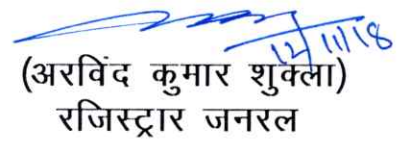 12/11/18
(अरविंद कुमार शुक्ला)
रजिस्ट्रार जनरल